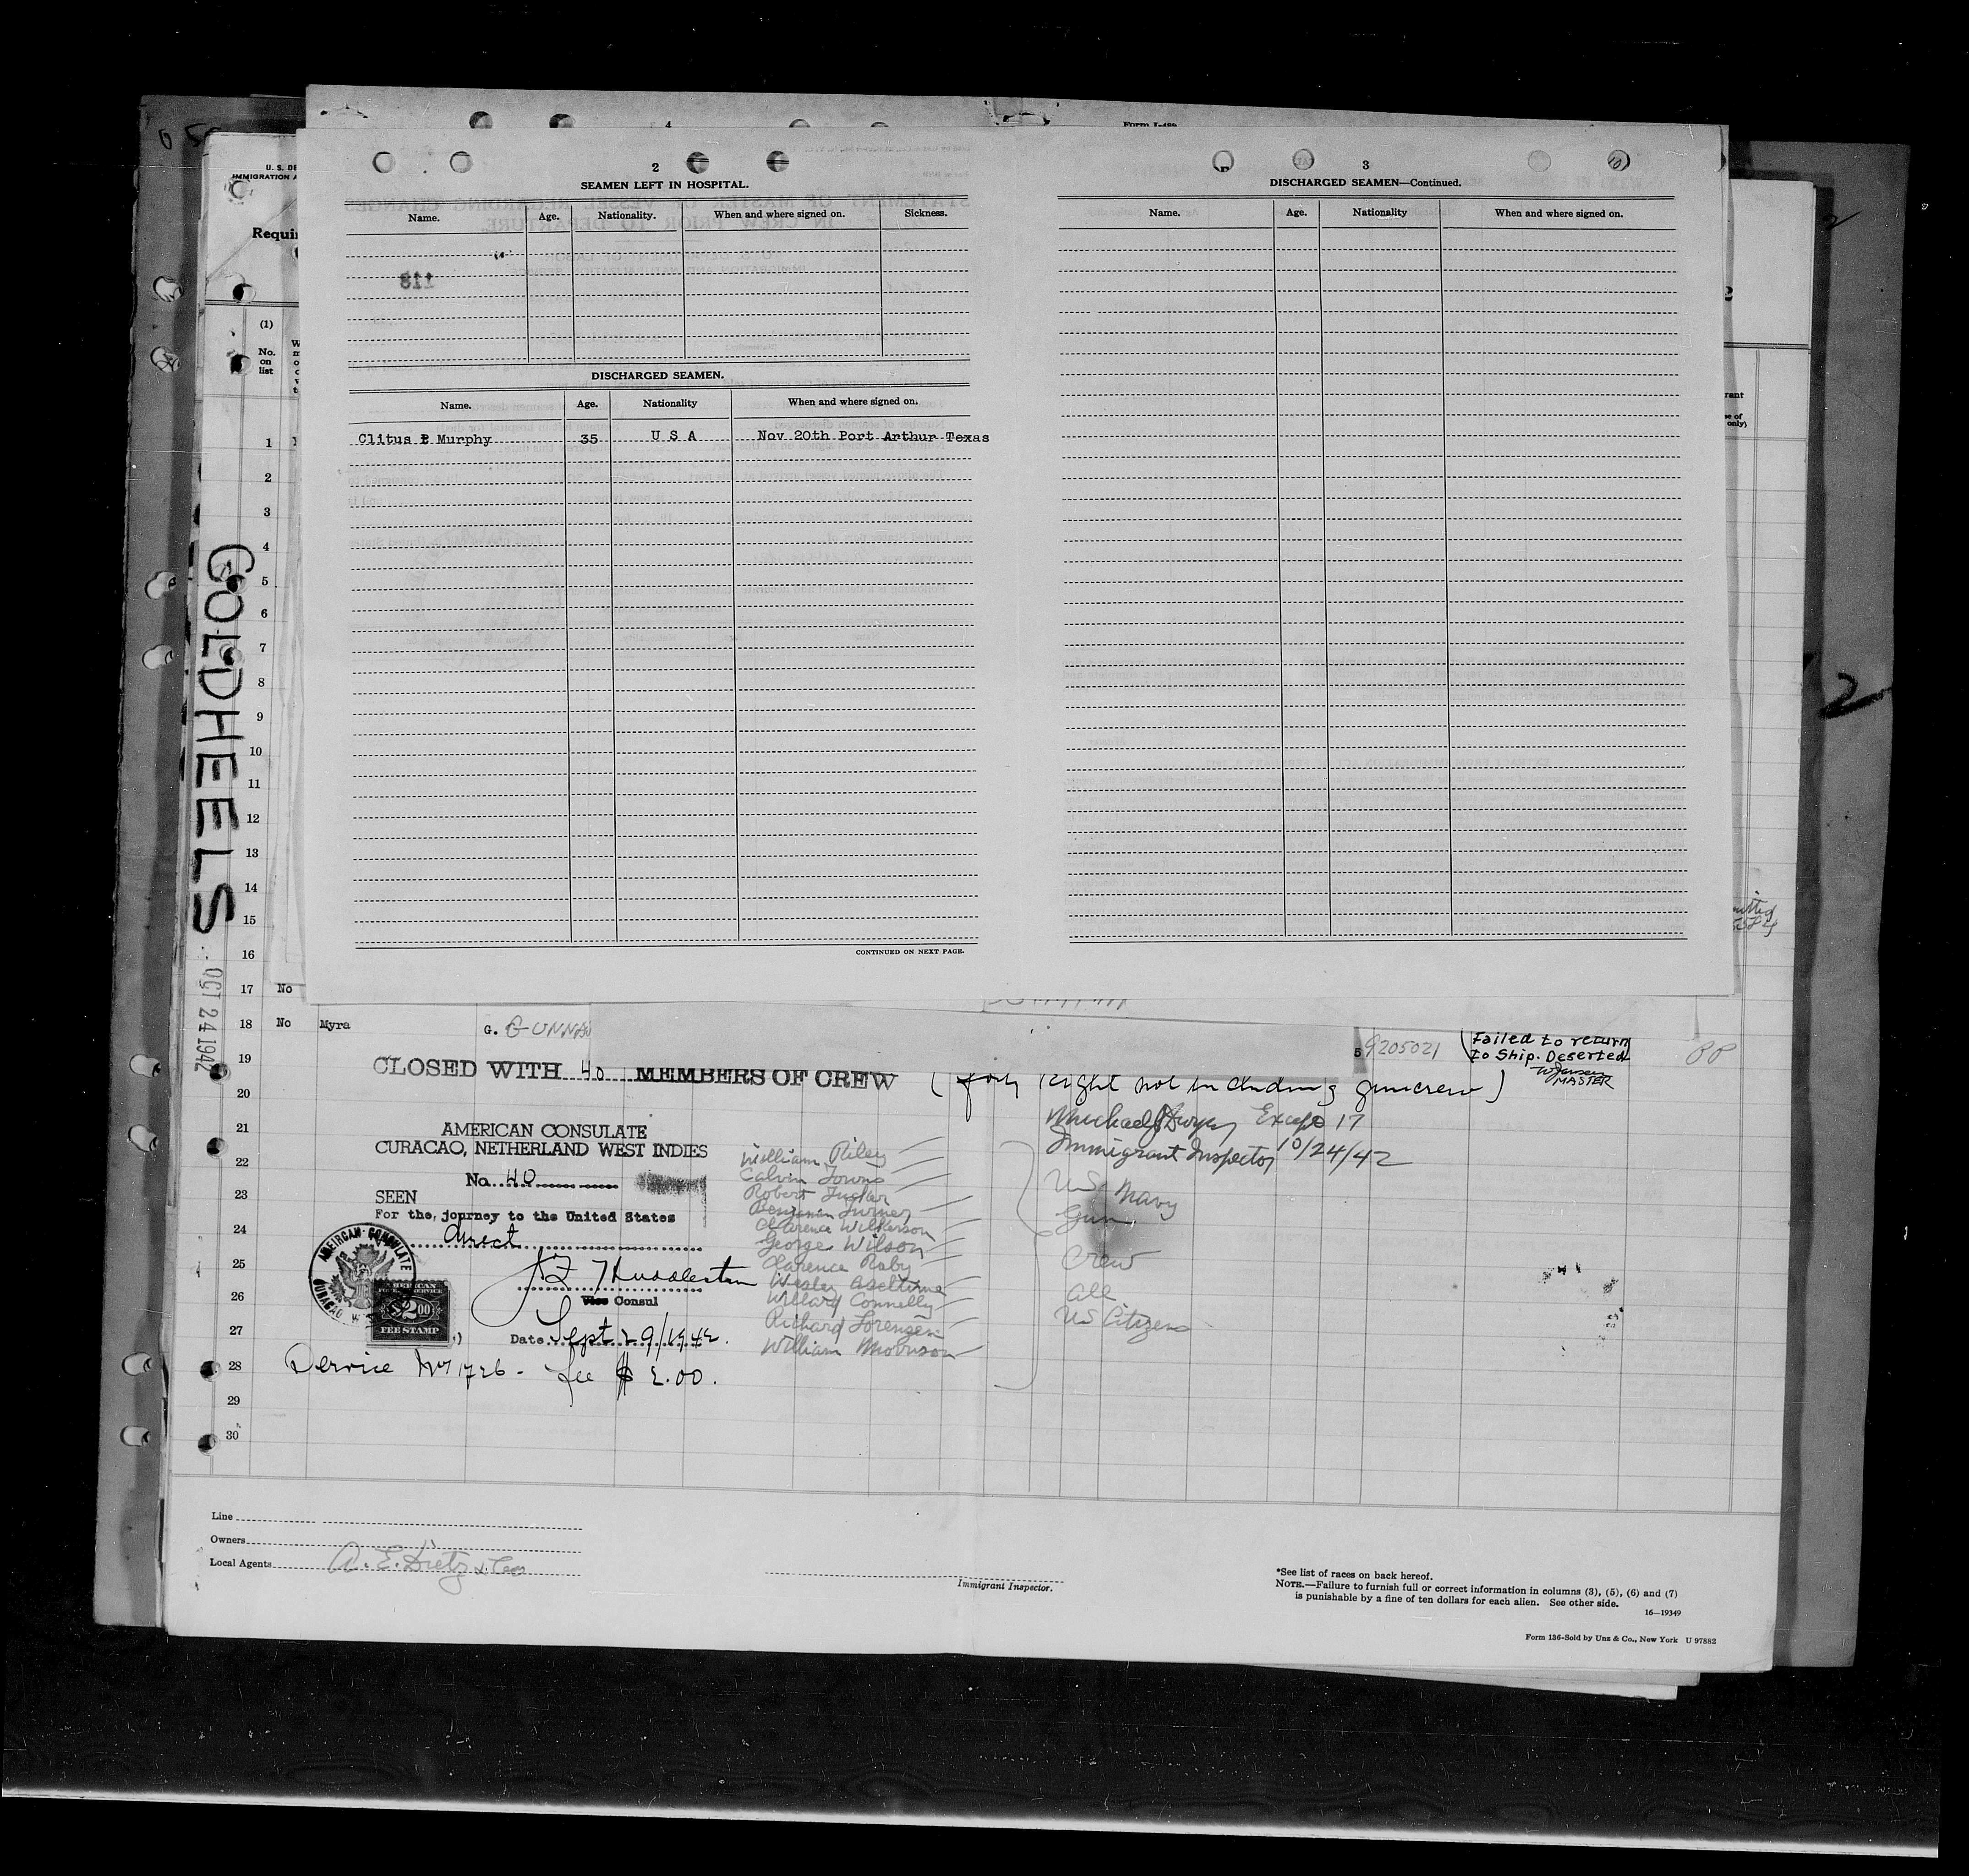 4
Form I-489
2
SEAMEN LEFT IN HOSPITAL.
Name. Age. Nationality. When and where signed on. Sickness.
118
DISCHARGED SEAMEN.
Name. Age. Nationality When and where signed on.
Clitus B Murphy 35 U S A Nov 20th Port Arthur Texas
CONTINUED ON NEXT PAGE.
3
DISCHARGED SEAMEN—Continued.
Name. Age. Nationality When and where signed on.
U. S. DE
IMMIGRATION A
Requi
(1)
No.
on
list
1
2
3
4
5
6
7
8
9
10
11
12
13
14
15
16
17 No
18 No Myra G. GUNNA
19
20
21
22
23
24
25
26
27
28
29
30
GOLDHEELS
OCT 24 1942
2
rant
only)
9205021
(Failed to return
to Ship. Deserted
W Jensen
MASTER
PP
CLOSED WITH 40 MEMBERS OF CREW (forty eight not including guncrew)
AMERICAN CONSULATE
CURACAO, NETHERLAND WEST INDIES
No. 40
SEEN
For the journey to the United States
direct
Vice Consul
Date Sept 29/1942.
AMERICAN CONSULATE
CURACAO
AMERICAN
FOREIGN SERVICE
$2.00
FEE STAMP
Service No 1726 - fee $ 2.00.
William Riley
Calvin Towns
Robert Tucker
Benjamin Turner
Clarence Wilkerson
George Wilson
Clarence Raby
Wesley Aseltine
Willard Connelly
Richard Lorenzen
William Morrison
Michael J Dwyer Except 17
Immigrant Inspector 10/24/42
US Navy
Gun
Crew
all
US Citizens
Line
Owners
Local Agents A. E. Dietz & Co
Immigrant Inspector.
*See list of races on back hereof.
NOTE.—Failure to furnish full or correct information in columns (3), (5), (6) and (7)
is punishable by a fine of ten dollars for each alien. See other side.
16—19349
Form 136-Sold by Unz & Co., New York U 97882